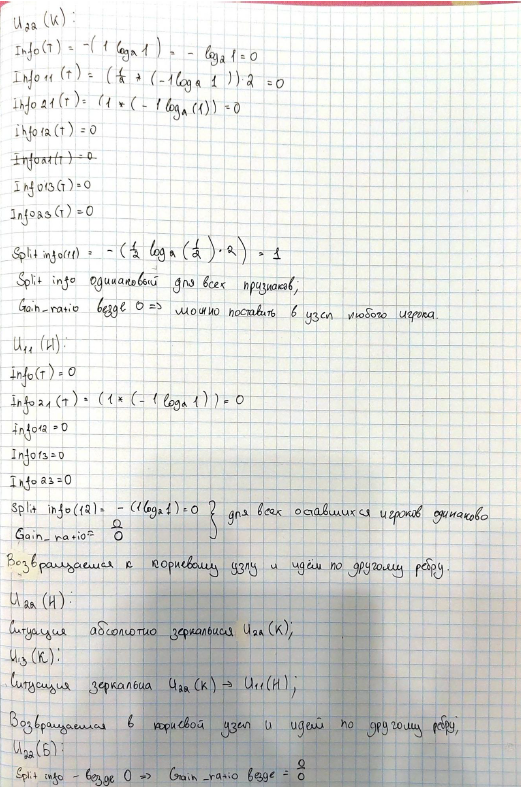 U₂₂ (К):
Info(T) = -(1 log₂ 1) = - log₂ 1 = 0
Info 11 (T) = (1/2 * (-1 log₂ 1)) · 2 = 0
Info 21 (T) = (1 * (-1 log₂ (1)) = 0
info 12 (T) = 0
Info 21 (T) = 0
Info 13 (T) = 0
Info 23 (T) = 0
Split info(11) = - (1/2 log₂ (1/2) · 2) = 1
Split info одинаковый для всех признаков;
Gain_ratio везде 0 => можно поставить в узел любого игрока.
U₁₁ (Н):
Info(T) = 0
Info 21 (T) = (1 * (-1 log₂ 1)) = 0
info 12 = 0
Info 13 = 0
Info 23 = 0
Split info (12) = - (1 log₂ 1) = 0 } для всех оставшихся игроков одинаково
Gain_ratio = 0/0
Возвращаемся к корневому узлу и идём по другому ребру.
U₂₂ (Н):
Ситуация абсолютно зеркальная U₂₂ (К);
U₁₃ (К):
Ситуация зеркальна U₂₂ (К) → U₁₁ (Н);
Возвращаемся в корневой узел и идем по другому ребру;
U₂₂ (Б):
Split info - везде 0 => Gain_ratio везде = 0/0